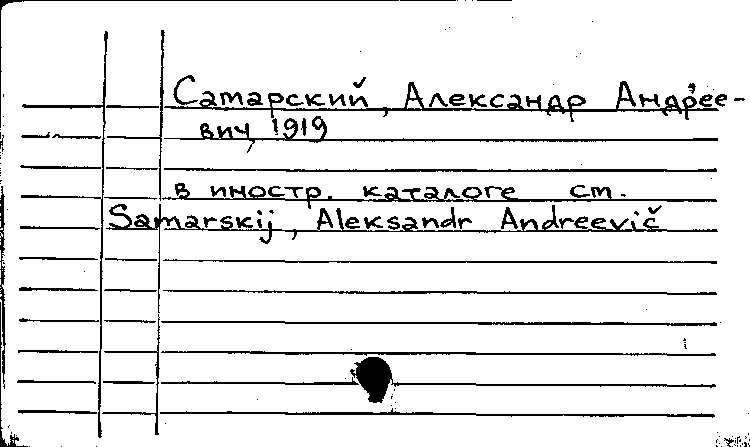 Самарский, Александр Андрее-
вич, 1919
в иностр. каталоге см.
Samarskij, Aleksandr Andreevič